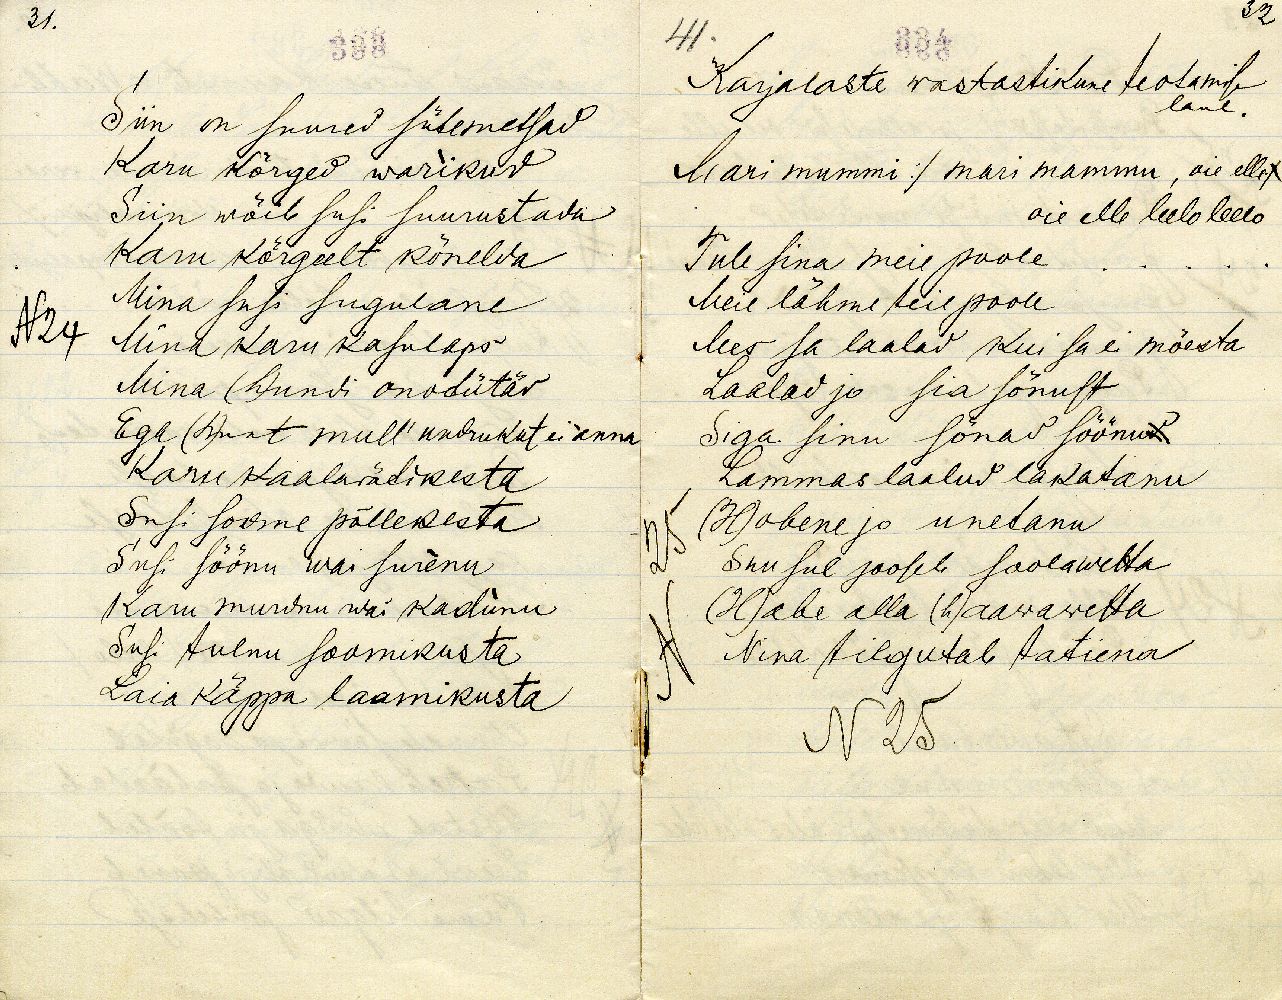 31.
Siin on suured sütemetsad
Karu kõrged warikud
Siin wõib susi suurustada
Karu kõrgeelt kõnelda
Mina susi sugulane
N 24
Mina karu kasulaps
Mina (h)undi onotütär
Ega (h)unt mull' undrukut ei anna
Karu kaalarätikesta
Susi soome põllekesta
Susi söönu wai surënu
Karu murdnu wai kadunu
Susi tulnu soomikusta
Laia käppa laamikusta
32
41.
Karjalaste wastastikune teotamise
laul.
Mari mummi :/ mari mammu, oie elle
oie elle leelo leelo
Tule sina meie poole . . . . . .
Meie lähme teie poole
Mes sa laalad kui sa ei mõesta
Laalad jo sia sõnust
Siga sinu sõnad söönud
Lammas laalud lakatanu
(H)obene jo unetanu
Suu sul jooseb soolawetta
(H)abe alla (h)aawawetta
Nina tilgutab tatiena
N 25
N 25